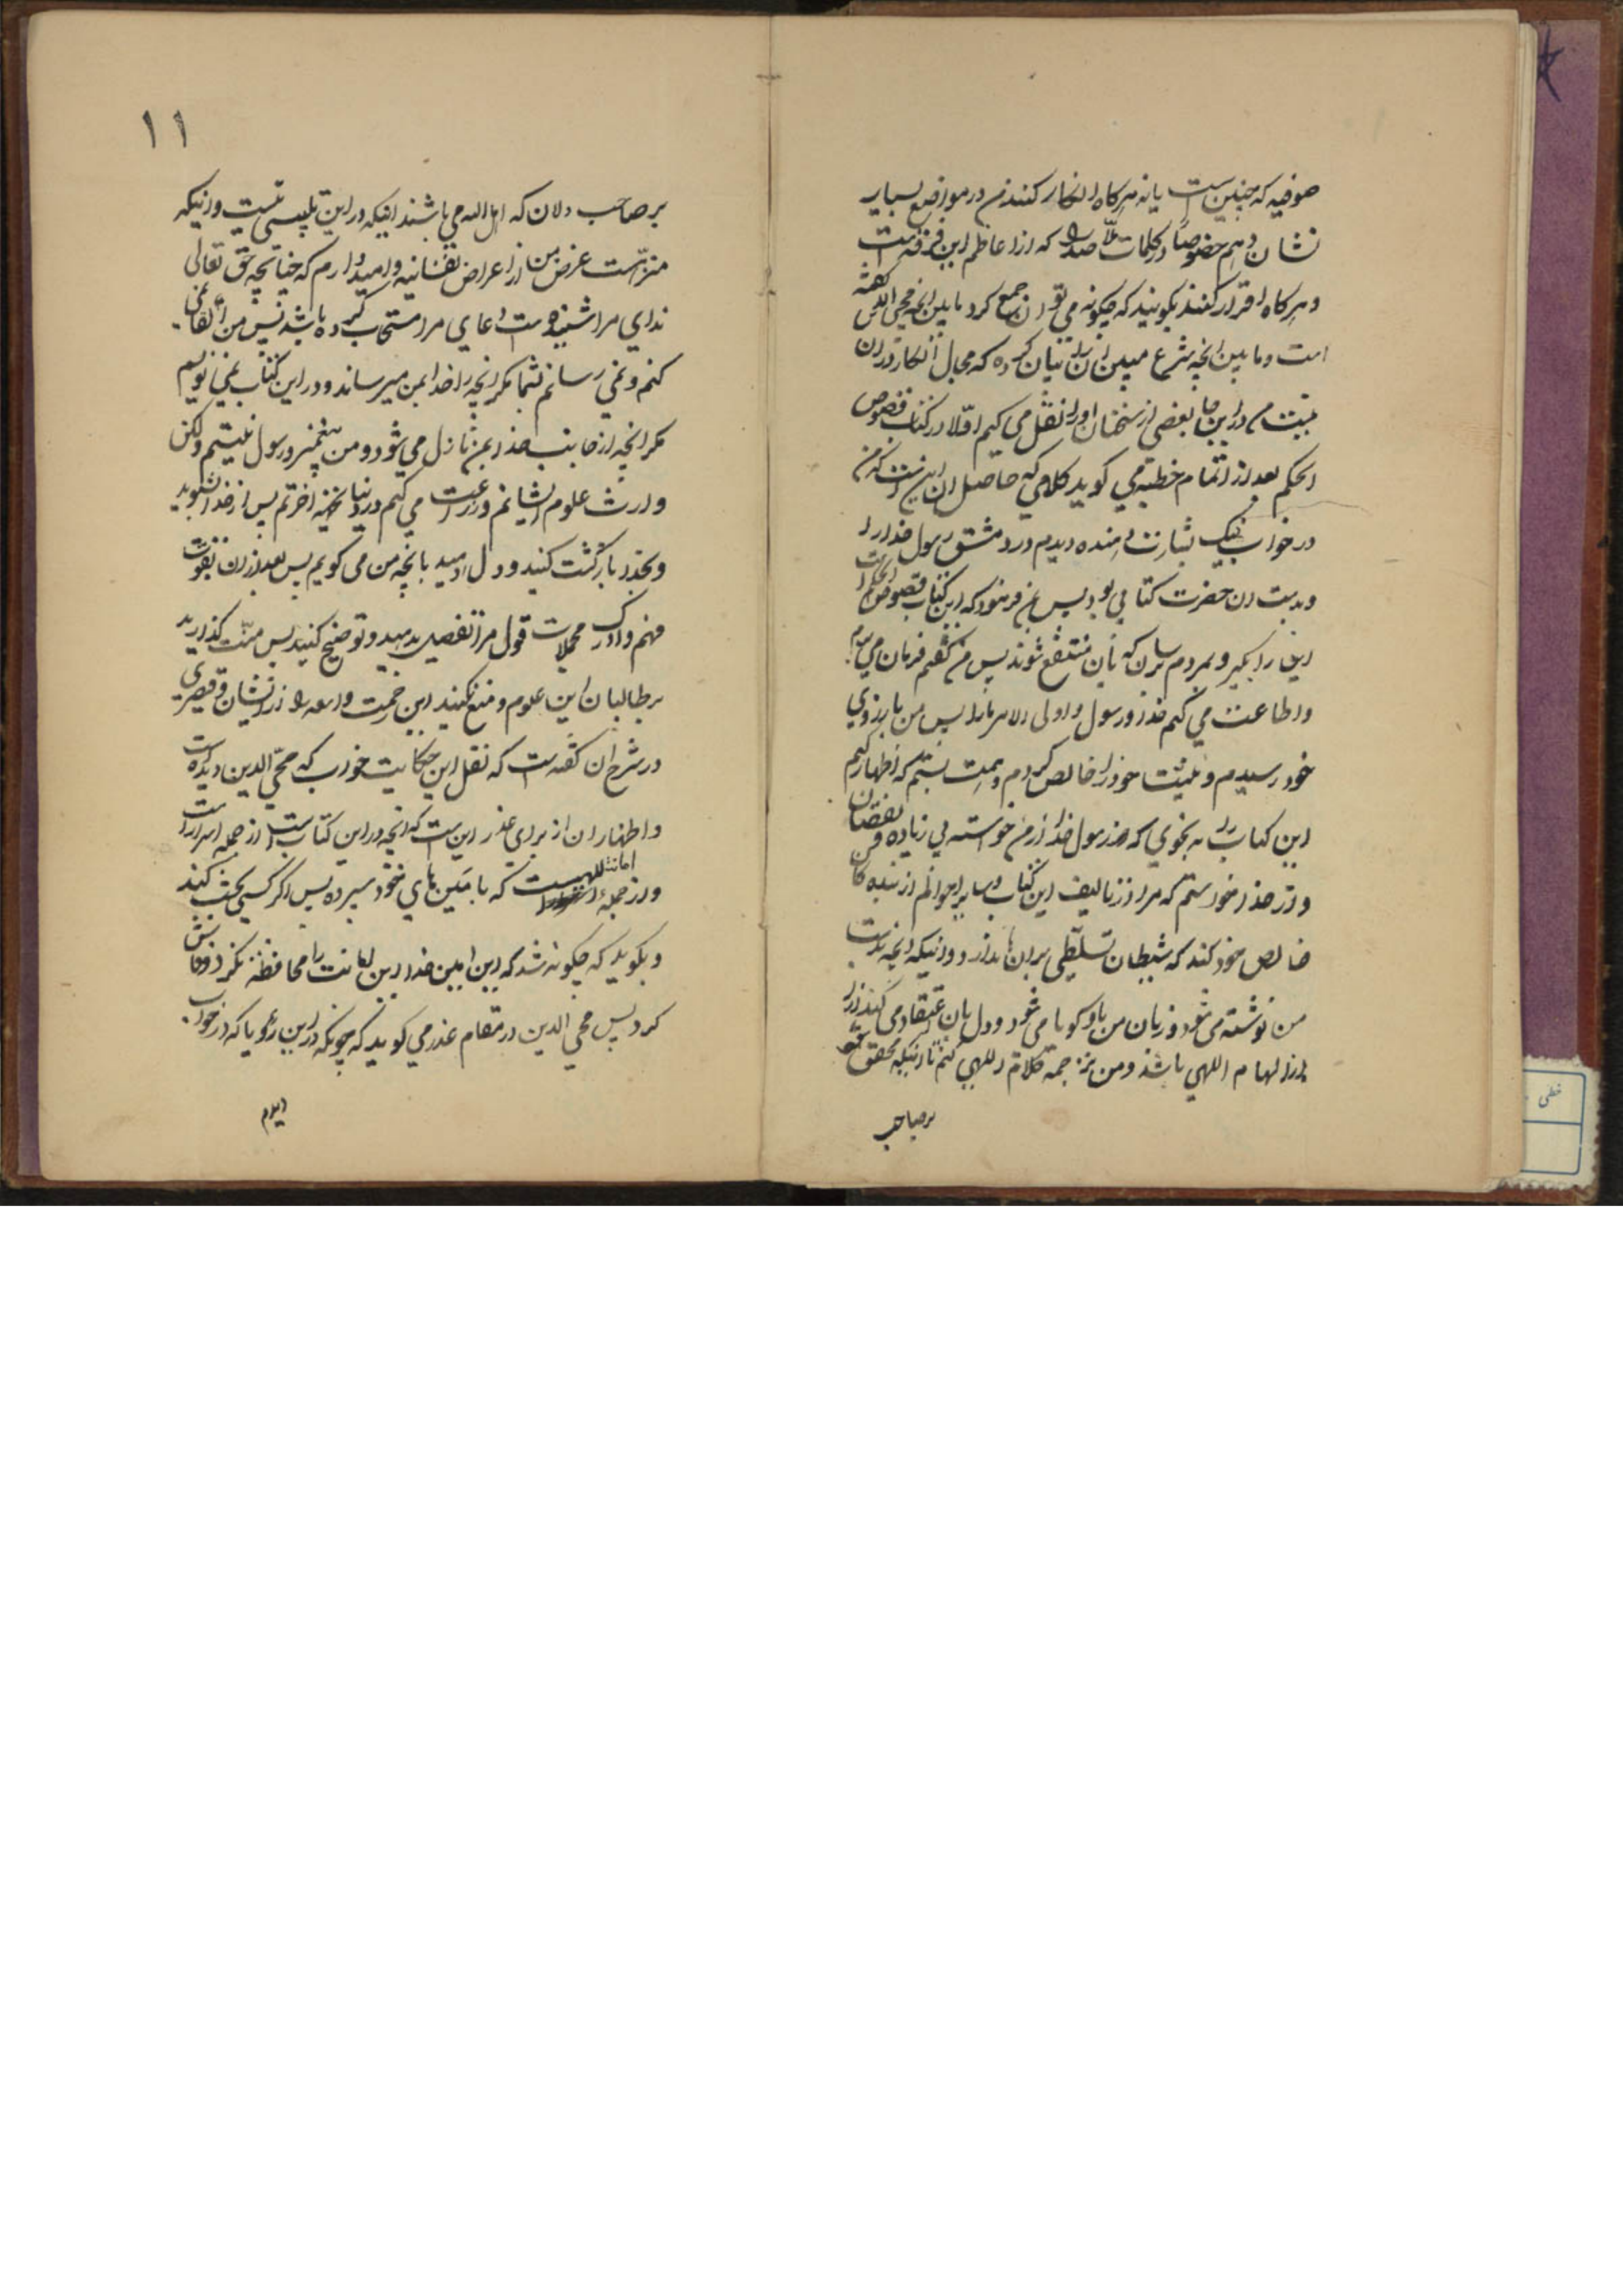 صوفیه که چنین است یا نه هرگاه انکار کنند من در مواضع بسیار
نشان دهم خصوصا در کلمات ملا صدرا که از اعاظم این فرقه است
و هرگاه اقرار کنند بگویند که چگونه می توان جمع کرد ما بین انچه محیی الدین گفته
است و ما بین انچه شرع مبین ان را بیان کرده که مجال انکار در ان
نیست و در این جا بعضی از سخنان او را نقل می کنم اولا در کتاب فصوص
الحکم بعد از اتمام خطبه می گوید کلامی که حاصل ان این است که من
در خواب نیک بشارت دهنده دیدم در دمشق رسول خدا را
و بدست ان حضرت کتابی بود پس بمن فرمود که این کتاب فصوص الحکم است
این را بگیر و بمردم برسان که بان منتفع شوند پس من گفتم فرمان می برم
و اطاعت می کنم خدا و رسول و اولی الامر را پس من بارزوی
خود رسیدم و نیت خود را خالص کردم و همت بستم که اظهار کنم
این کتاب را به نحوی که رسول خدا از من خواسته بی زیاده و نقصان
و از خدا خواستم که مرا در تالیف این کتاب و سایر احوالم از بندگان
خالص خود کند که شیطان تسلطی بر ان ها ندارد و اینکه انچه بدست
من نوشته می شود و زبان من باو گویا می شود و دل بان اعتقاد می کند
از الهام اللهی باشد و من ترجمه کلام اللهی کنم تا اینکه محقق شود
بر صاحب
۱۱
بر صاحب دلان که اهل الله می باشند اینکه در این تلبیسی نیست و اینکه
منزه است غرض من از اعراض نفسانیه و امیدوارم که چنانچه حق تعالی
ندای مرا شنیده است دعای مرا مستجاب کرده باشد پس من القا نمی
کنم و نمی رسانم بشما مگر انچه را خدا بمن میرساند و در این کتاب نمی نویسم
مگر انچه از جانب خدا بمن نازل می شود و من پیغمبر و رسول نیستم ولکن
وارث علوم ایشانم و زراعت می کنم در دنیا بجهة اخرتم پس از خدا بشنوید
و بخدا بازگشت کنید و دل دهید بانچه من می گویم پس بعد از ان بقوت
فهم و ادراک مجملات قول مرا تفصیل بدهید و توضیح کنید پس منت گذارید
بر طالبان این علوم و منع نکنید این رحمت واسعه را از ایشان و قیصری
در شرح ان گفته است که نقل این حکایت خواب که محیی الدین دیده است
و اظهار ان از برای عذر این است که انچه در این کتاب است از جمله اسرار است
و از جمله امانت اللهی است که بامین های خود سپرده پس اگر کسی بحث کند
و بگوید که چگونه شد که این امین خدا این امانت را محافظة نکرد و فاش
کرد پس محیی الدین در مقام عذر می گوید که چونکه در این رؤیا که در خواب
دیدم
خطی